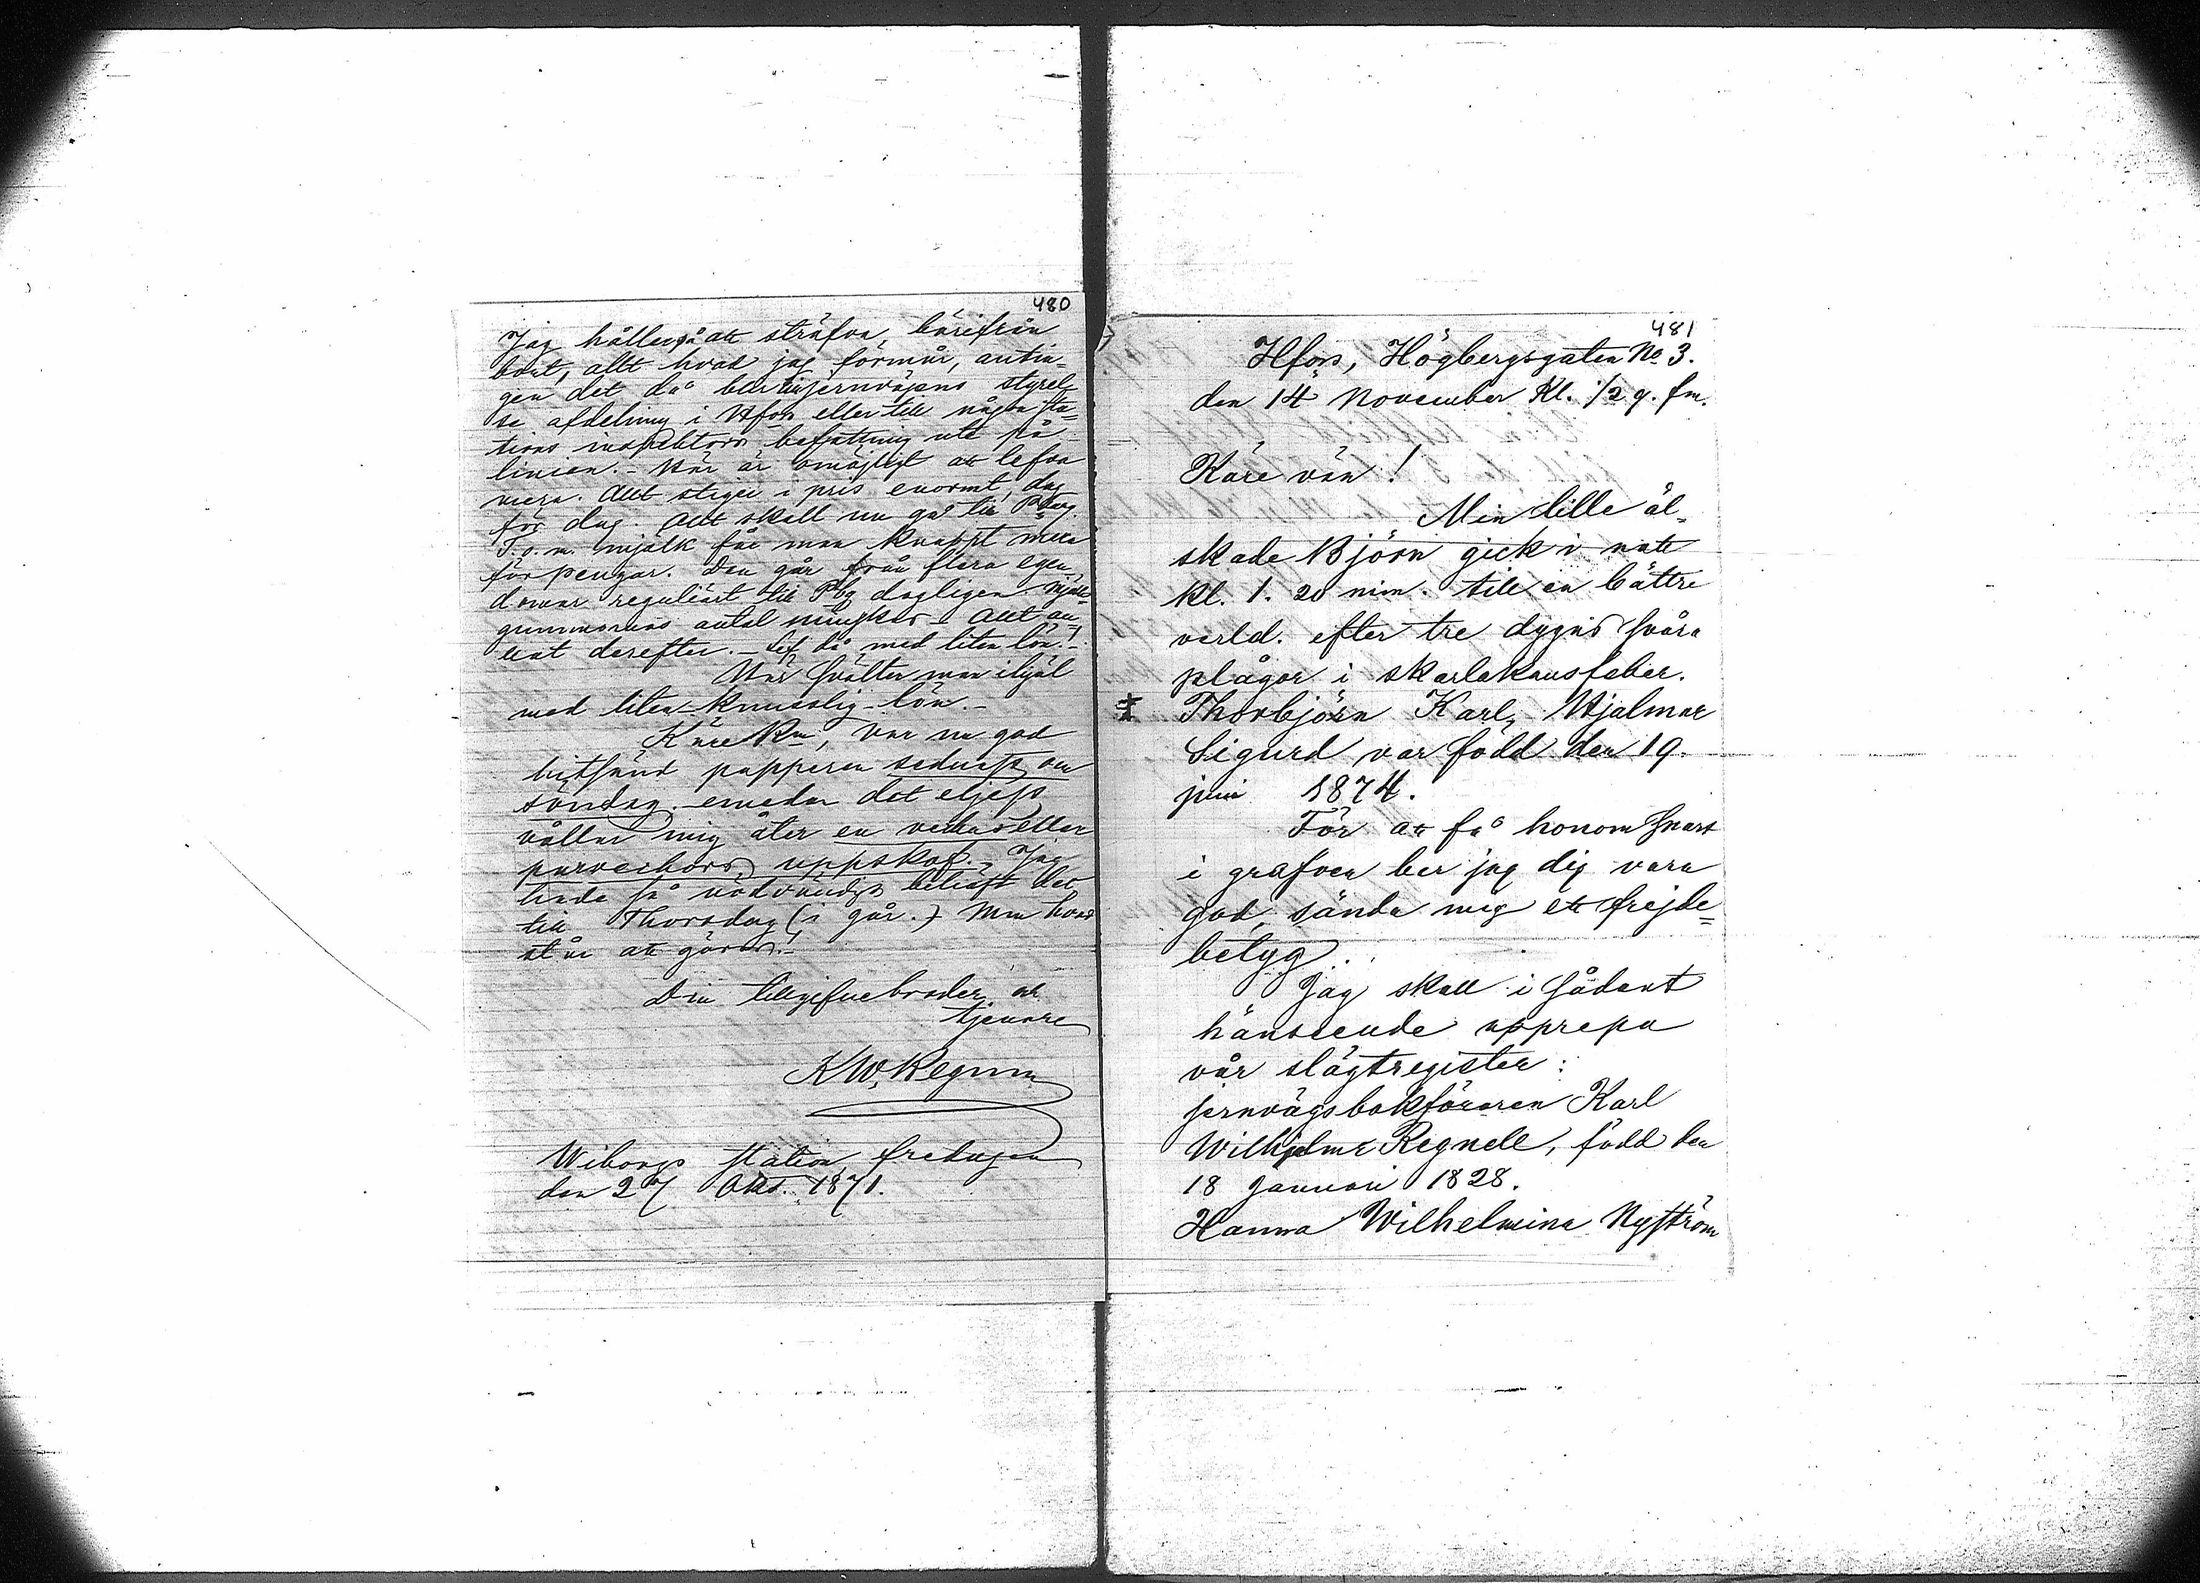 480
Jag håller på att sträfva härifrån
bort, allt hvad jag förmår, antin=
gen det då blir i jernvägens styrel=
se afdelning i Hfors eller till någon sta=
tions inspektors befattning ute på
linien. - Här är omöjligt att lefva
mera. Allt stiger i pris enormt, dag
för dag. Allt skall nu gå till Pburg.
T.o.m. mjölk får man knappt mera
för pengar. Den går från flera egen
domar reguliert till Pbg dagligen. Mjölk=
gummornas antal minskas. Allt an=
nat derefter. - Lef då med liten lön! -
Här svälter man ihjäl
med liten knusslig lön. -
Käre Bn, var nu god
hitsänd papperen senast om
söndag. emedan det eljess
vållar mig åter en veckas eller
parveckors uppskof. Jag
hade så nödvändigt behöft det
till Thorsdag (i går.) Men hvad
står att göras! -
Din tillgifne broder och
tjenare
KW. Regnell
Wiborgs station fredagen
den 27 Okt. 1871.
481
Hfors, Högbergsgatan No 3.
den 14 November Kl. 1/2 9. fm.
Käre vän!
Min lille äl=
skade Björn gick i natt
kl. 1. 20 min. till en bättre
verld. efter tre dygns svåra
plågor i skarlakansfeber.
Thorbjörn Karl Hjalmar
Sigurd var född den 19.
juni 1874.
För att få honom snart
i grafven ber jag dig vara
god, sända mig ett frejde=
betyg.
Jag skall i sådant
hänseende upprepa
vår slägtregister:
jernvägsbokföraren Karl
Wilhjelm Regnell, född den
18 Januari 1828.
Hanna Wilhelmina Nyström